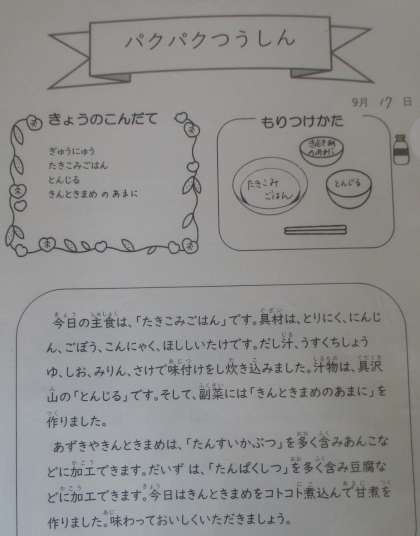 パクパクつうしん
9月 17 日
きょうのこんだて
ぎゅうにゅう
たきこみごはん
とんじる
きんときまめ の あまに
もりつけかた
きんときまめ
のあまに
たきこみ
ごはん
とんじる
今日の主食は、「たきこみごはん」です。具材は、とりにく、にんじ
ん、ごぼう、こんにゃく、ほししいたけです。だし汁、うすくちしょう
ゆ、しお、みりん、さけで味付けをし炊き込みました。汁物は、具沢
山の「とんじる」です。そして、副菜には「きんときまめのあまに」を
作りました。
あずきやきんときまめは、「たんすいかぶつ」を多く含みあんこな
どに加工できます。だいず は、「たんぱくしつ」を多く含み豆腐な
どに加工できます。今日はきんときまめをコトコト煮込んで甘煮を
作りました。味わっておいしくいただきましょう。